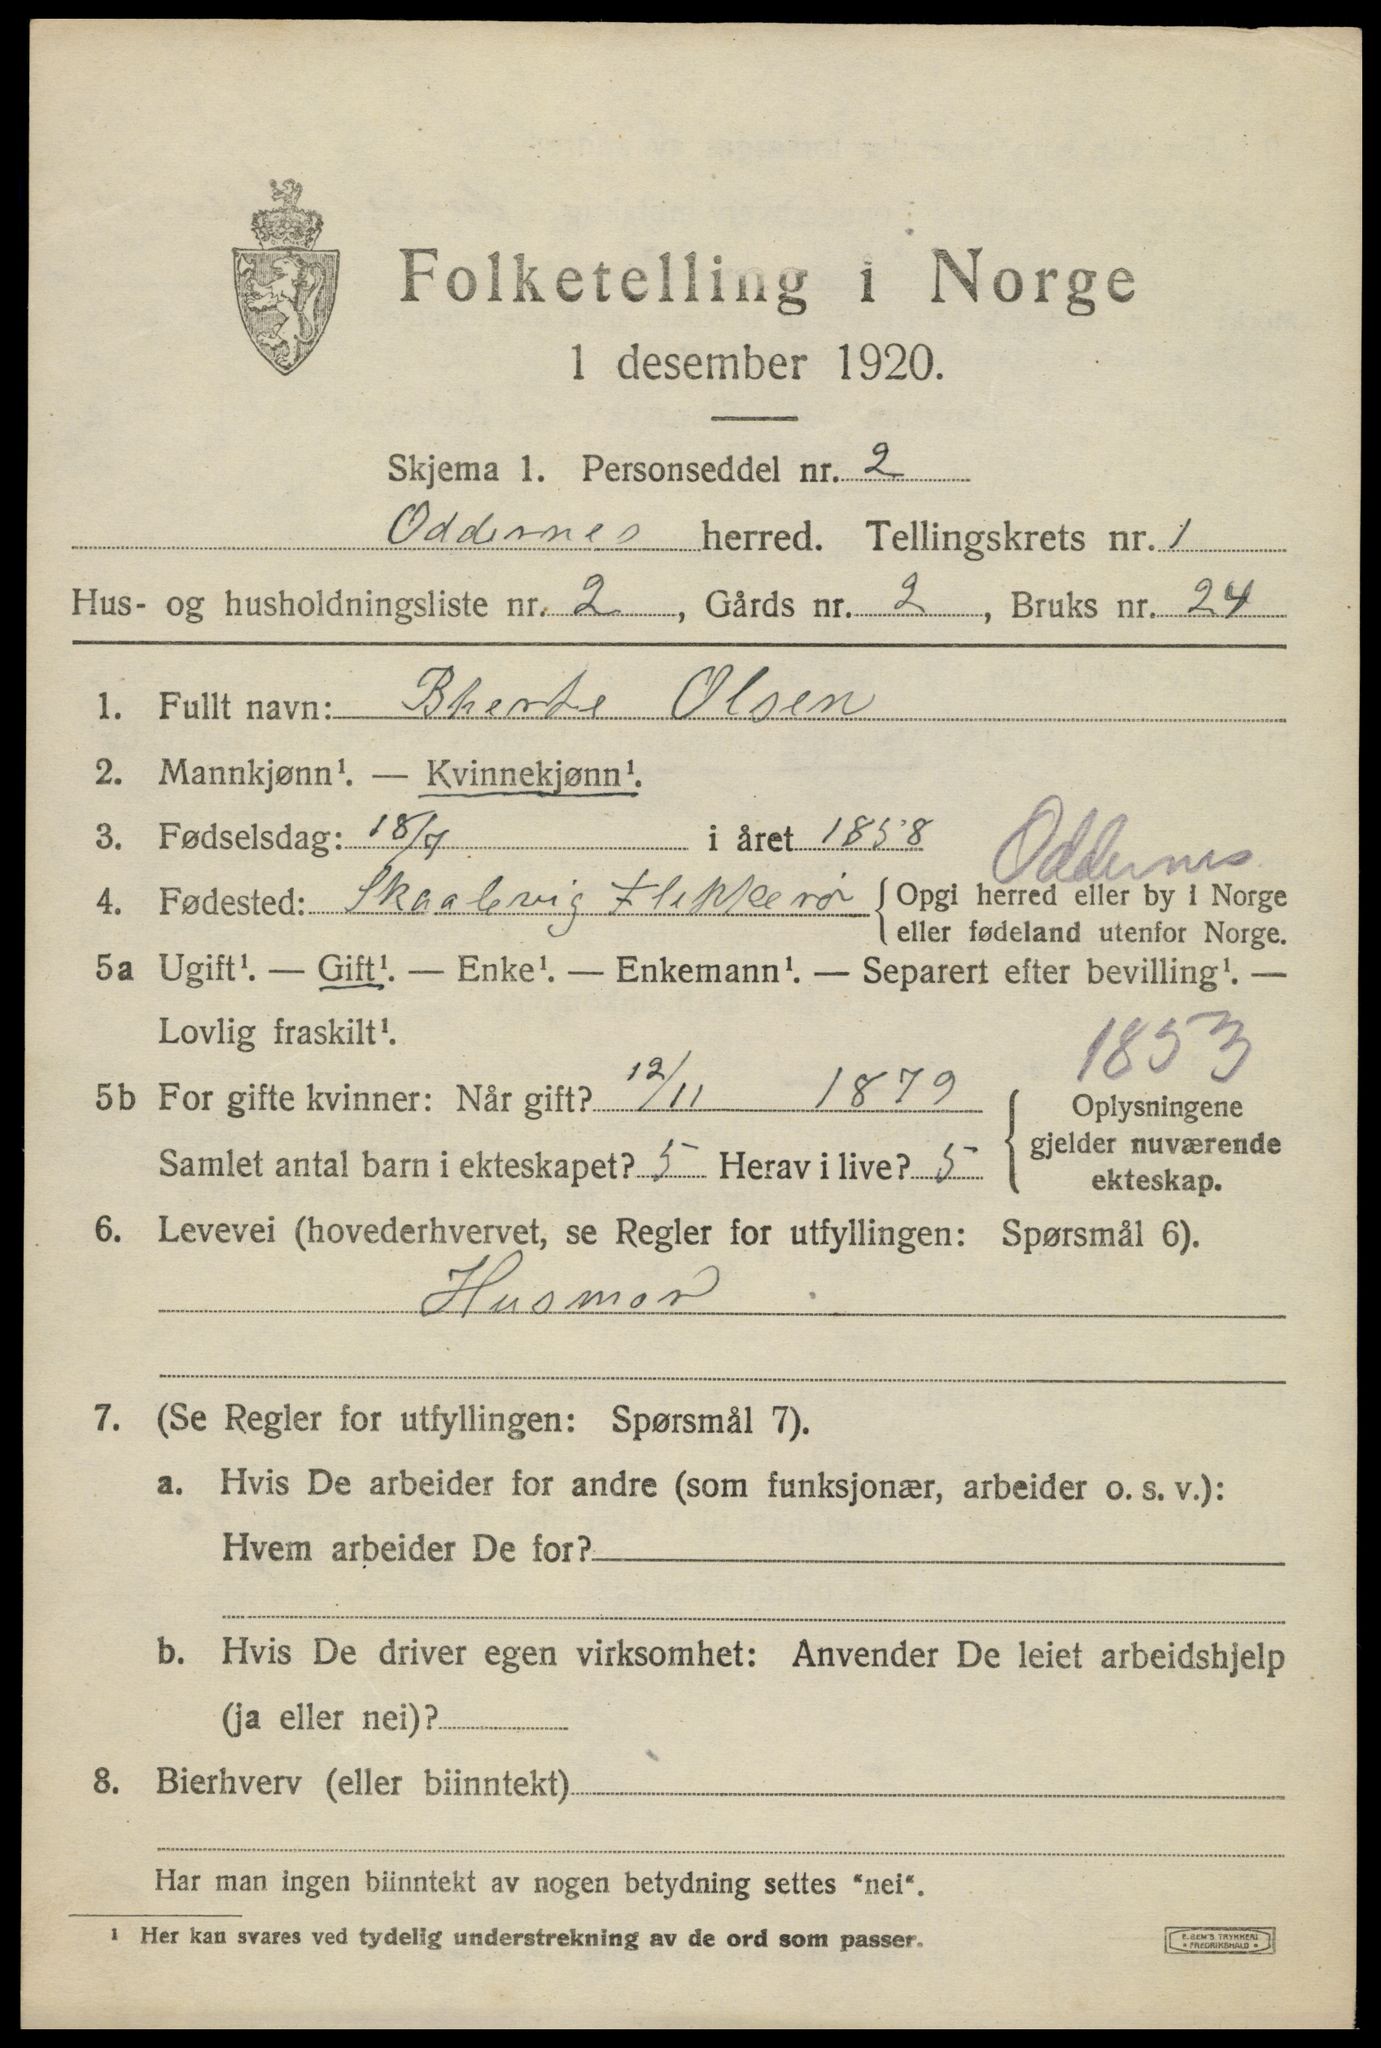 Folketelling i Norge
1 desember 1920.
Skjema 1. Personseddel nr. 2
Oddernes herred. Tellingskrets nr. 1
Hus- og husholdningsliste nr. 2, Gårds nr. 2, Bruks nr. 24
1. Fullt navn: Bherte Olsen
2. Mannkjønn¹. — Kvinnekjønn¹.
3. Fødselsdag: 18/7 i året 1858
Oddernes
4. Fødested: Skaalevig Flekkerør { Opgi herred eller by i Norge
eller fødeland utenfor Norge.
5a Ugift¹. — Gift¹. — Enke¹. — Enkemann¹. — Separert efter bevilling¹. —
Lovlig fraskilt¹.
1853
5b For gifte kvinner: Når gift? 12/11 1879
Samlet antal barn i ekteskapet? 5 Herav i live? 5
Oplysningene
gjelder nuværende
ekteskap.
6. Levevei (hovederhvervet, se Regler for utfyllingen: Spørsmål 6).
Husmor
7. (Se Regler for utfyllingen: Spørsmål 7).
a. Hvis De arbeider for andre (som funksjonær, arbeider o. s. v.):
Hvem arbeider De for?
b. Hvis De driver egen virksomhet: Anvender De leiet arbeidshjelp
(ja eller nei)?
8. Bierhverv (eller biinntekt)
Har man ingen biinntekt av nogen betydning settes "nei".
¹ Her kan svares ved tydelig understrekning av de ord som passer.
E. SEM'S TRYKKERI
• FREDRIKSHALD •